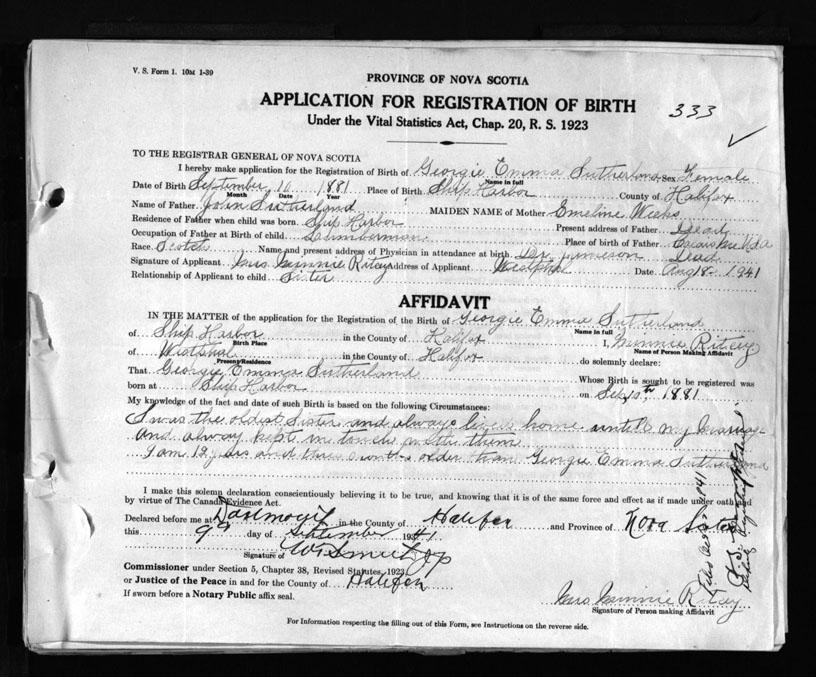 V. S. Form 1. 10M 1-39
PROVINCE OF NOVA SCOTIA
APPLICATION FOR REGISTRATION OF BIRTH
333
Under the Vital Statistics Act, Chap. 20, R. S. 1923
TO THE REGISTRAR GENERAL OF NOVA SCOTIA
I hereby make application for the Registration of Birth of Georgie Emma Sutherland Sex Female
Name in full
Date of Birth September 10 1881 Place of Birth Ship Harbor County of Halifax
Month Date Year
Name of Father John Sutherland MAIDEN NAME of Mother Emeline Weeks
Residence of Father when child was born. Ship Harbor Present address of Father Dead
Occupation of Father at Birth of child Lumberman Place of birth of Father
Race. Scotch Name and present address of Physician in attendance at birth. Dr. Jameson Dead
Signature of Applicant Mrs Minnie Ritcey Address of Applicant Westphal Date Aug 18 1941
Relationship of Applicant to child Sister
AFFIDAVIT
IN THE MATTER of the application for the Registration of the Birth of Georgie Emma Sutherland
Name in full
of Ship Harbor in the County of Halifax I, Minnie Ritcey
Birth Place Name of Person Making Affidavit
of Westphal in the County of Halifax do solemnly declare:
Present Residence
That Georgie Emma Sutherland Whose Birth is sought to be registered was
born at Ship Harbor on Sep 10th 1881
My knowledge of the fact and date of such Birth is based on the following Circumstances:
I was the oldest Sister and always lived home until my marriage
And always kept in touch with them
I am 12 yrs and three months older than Georgie Emma Sutherland
I make this solemn declaration conscientiously believing it to be true, and knowing that it is of the same force and effect as if made under oath and
by virtue of The Canada Evidence Act.
Declared before me at Dartmouth in the County of Halifax and Province of Nova Scotia
this 9th day of September 1941
Signature of
Commissioner under Section 5, Chapter 38, Revised Statutes, 1923
or Justice of the Peace in and for the County of Halifax
If sworn before a Notary Public affix seal.
Mrs Minnie Ritcey
Signature of Person making Affidavit
For Information respecting the filling out of this Form, see Instructions on the reverse side.